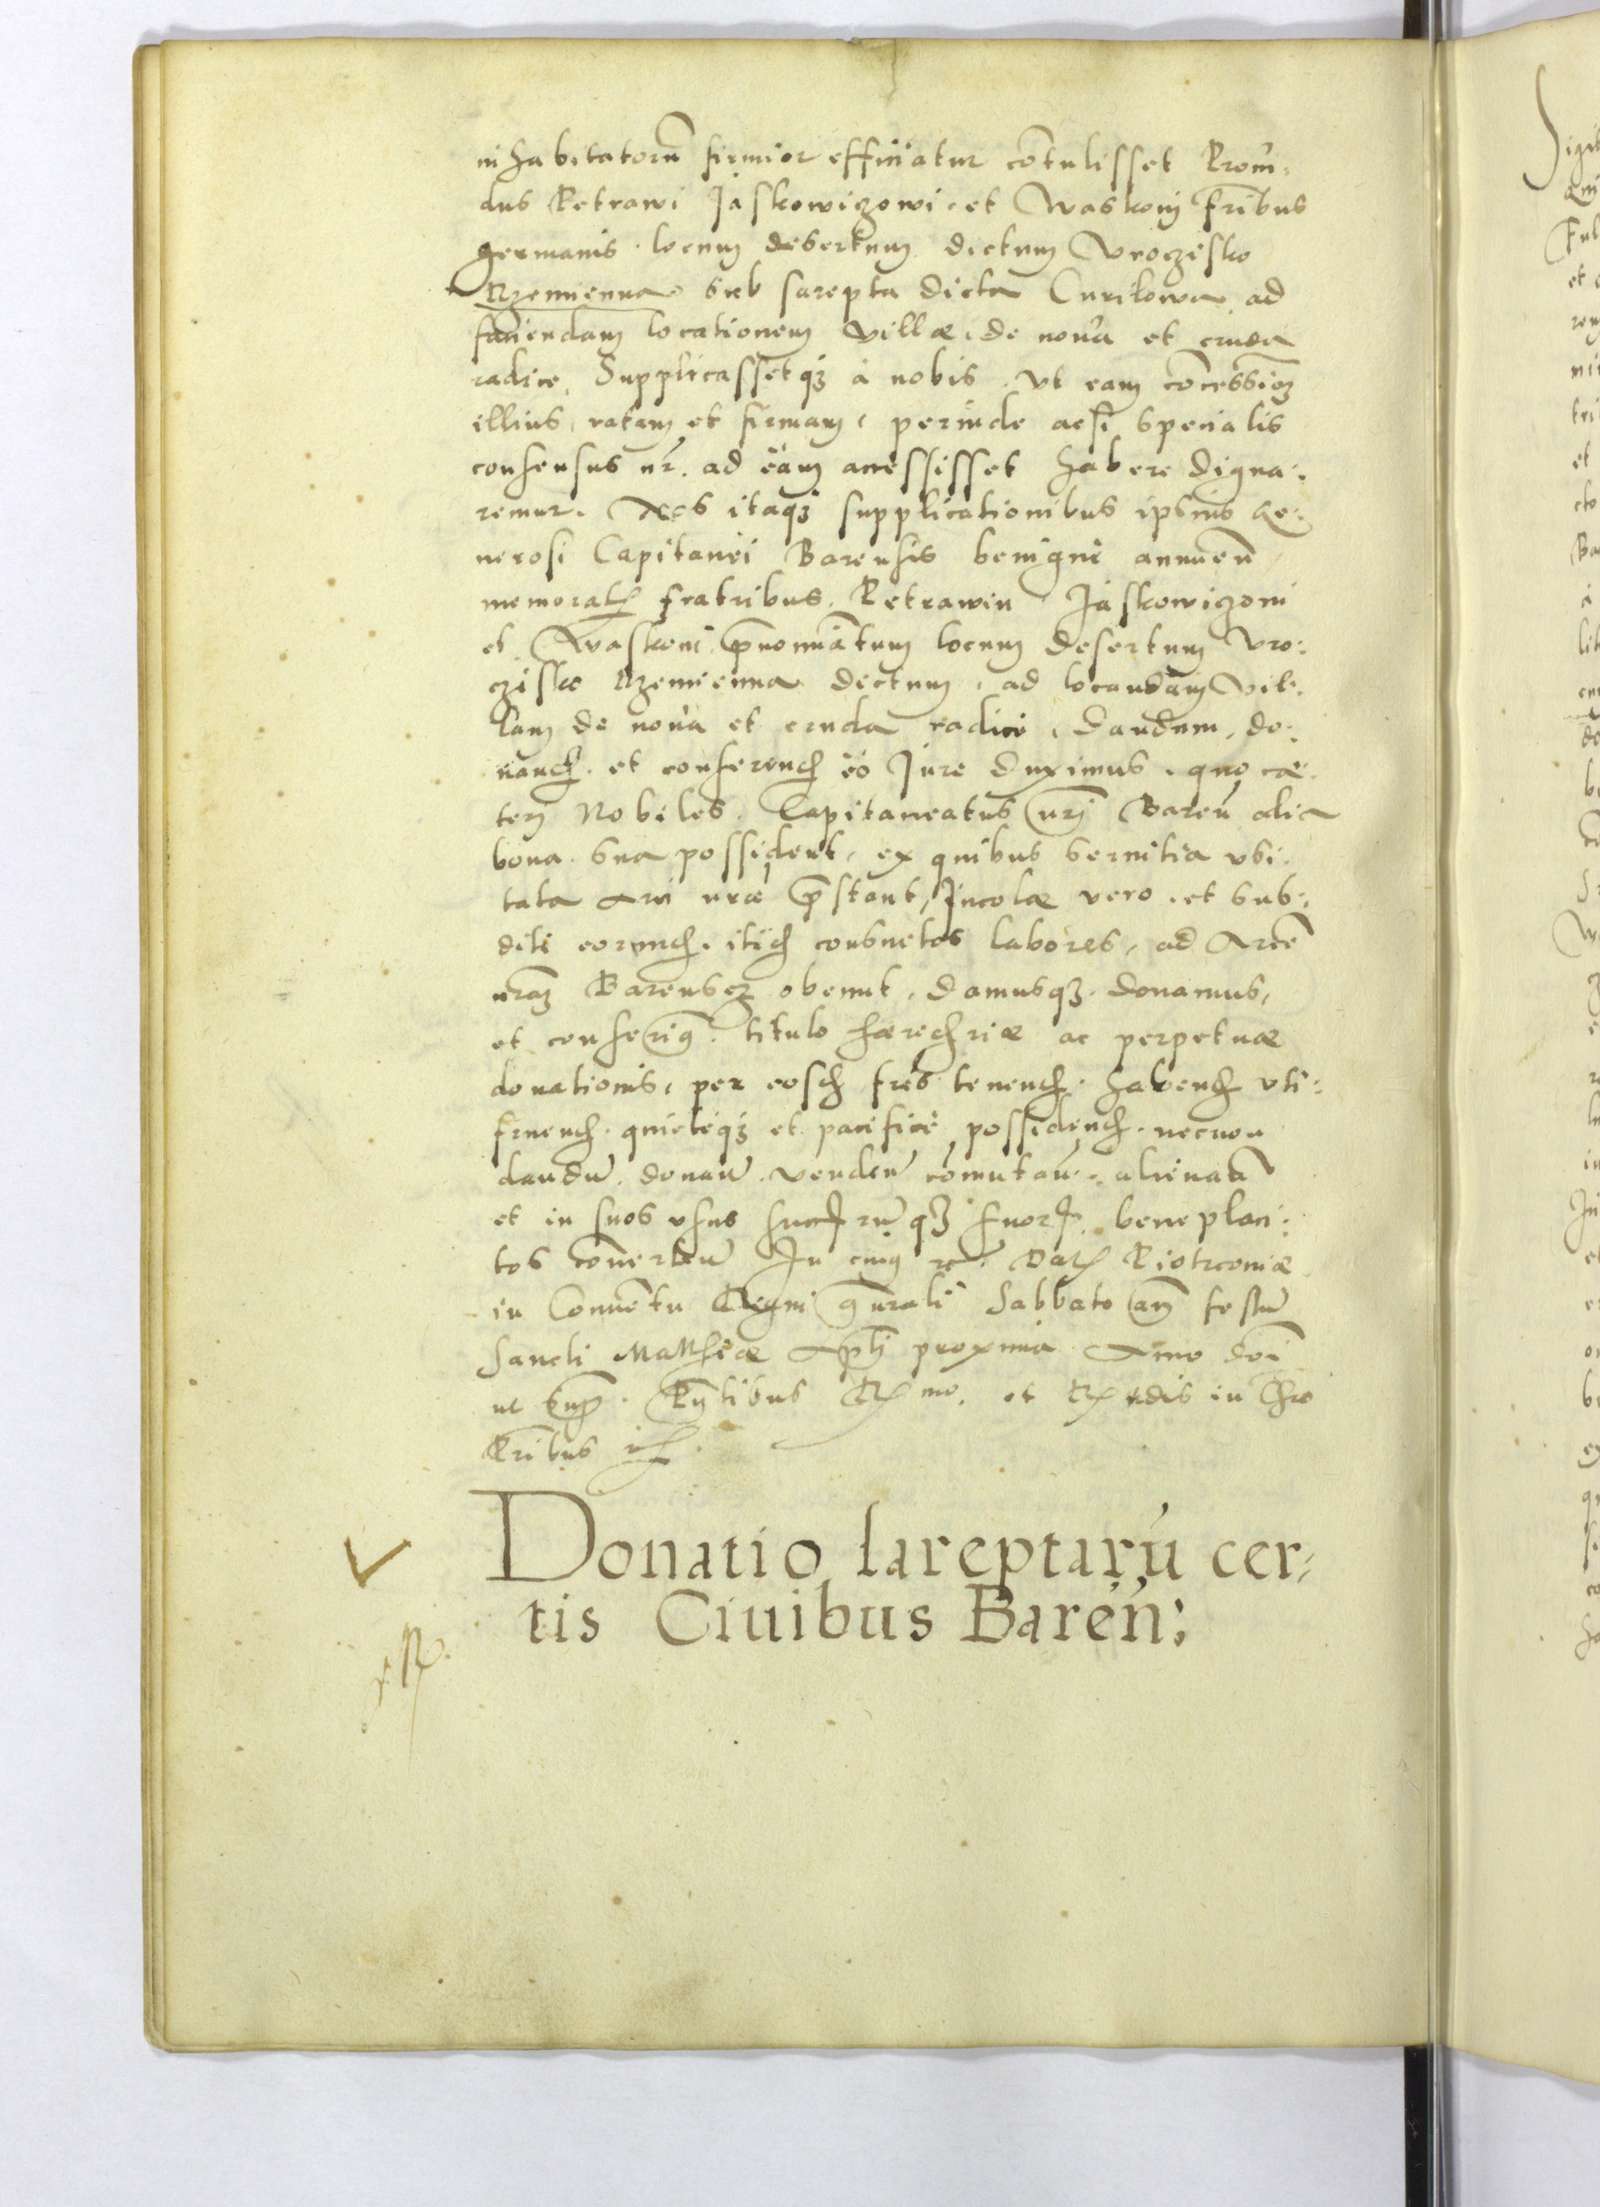 inhabitatorū firmior efficiatur cōtulisset Prom:
dus Petrawi Jaskowiczowi et Waskoni fribus
germanis locum desertum dictum Vroczisko
Rzemienna sub sarepta dicta Curilowa ad
faciendam locationem villæ de noua et cruda
radice. Supplicassetq3 à nobis vt eam cōcessiom
illius ratam et firmam, perinde acsi specialis
consensus nr. ad eam accessisset habere digna:
remur. Nos itaq3 supplicationibus ipsius Ge:
nerosi Capitanei Barensis benigne annuen̄
memorat fratribus Petrawin Jaskowiczoni
et Waskoni p̄nominatum locum desertum Vro:
czisko Rzemienna dictum, ad locandam Vil:
lam de noua et cruda radice, dandum, do:
nand et conferend eo Jure duximus, quo cæ:
teri Nobiles Capitaneatus nri Baren̄ alia
bona sua possident, ex quibus seruitia vsi:
tata Arci nræ p̄stant, Incolæ vero et sub:
diti eorund itid consuetos labores, ad Arcē
nram Barensem obeunt, Damusq3 donamus,
et conferimus titulo hæreditariæ ac perpetuæ
donationis, per eosd fres tenend habend vti:
fruend quieteq3 et pacifice possidend necnon
dandū donan̄ vendēn comutan̄ alienan̄
et in suos vsus succrūq3 suor beneplaci:
tos conuerten̄ In cuius rei Dat Piotrcouiæ
in Conuentu Regni gn̄rali Sabbato an̄ festū
Sancti Matthiæ Apli proximo Anno dni
ut supra. Pn̄tibus R mo. et R ndis in Chro
Pribus etc.
Donatio sareptarū cer,
tis Ciuibus Baren̄: